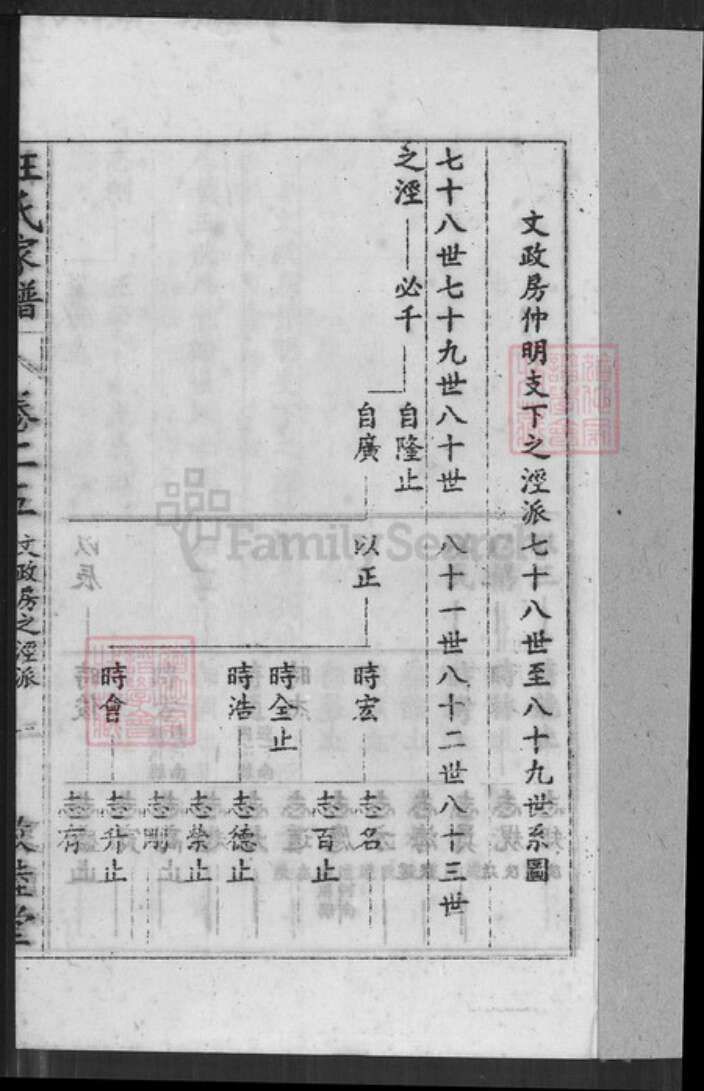 文政房仲明支下之涇派七十八世至八十九世系圖
七十八世七十九世八十世 八十一世八十二世八十三世
之涇 必千
自隆止
自廣 以正
時宏 志名
志百止
時全止
時浩 志德止
志榮止
志剛
時會 志升止
志有
汪氏家譜 卷二五 文政房之涇派 敦睦堂
FamilySearch